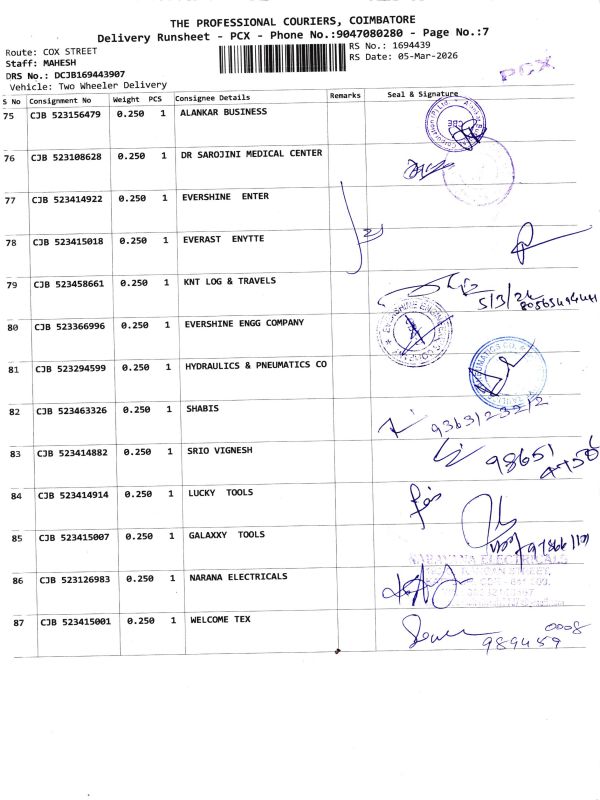 THE PROFESSIONAL COURIERS, COIMBATORE
Delivery Runsheet - PCX - Phone No.:9047080280 - Page No.:7
Route: COX STREET
RS No.: 1694439
Staff: MAHESH
RS Date: 05-Mar-2026
DRS No.: DCJB169443907
PCX
Vehicle: Two Wheeler Delivery
S No Consignment No Weight PCS Consignee Details Remarks Seal & Signature
75 CJB 523156479 0.250 1 ALANKAR BUSINESS
76 CJB 523108628 0.250 1 DR SAROJINI MEDICAL CENTER
77 CJB 523414922 0.250 1 EVERSHINE ENTER
78 CJB 523415018 0.250 1 EVERAST ENYTTE
79 CJB 523458661 0.250 1 KNT LOG & TRAVELS
80 CJB 523366996 0.250 1 EVERSHINE ENGG COMPANY
81 CJB 523294599 0.250 1 HYDRAULICS & PNEUMATICS CO
82 CJB 523463326 0.250 1 SHABIS
9363123212
83 CJB 523414882 0.250 1 SRIO VIGNESH
98651
84 CJB 523414914 0.250 1 LUCKY TOOLS
85 CJB 523415007 0.250 1 GALAXXY TOOLS
NARAYANA ELECTRICALS
86 CJB 523126983 0.250 1 NARANA ELECTRICALS
87 CJB 523415001 0.250 1 WELCOME TEX
0008
989459